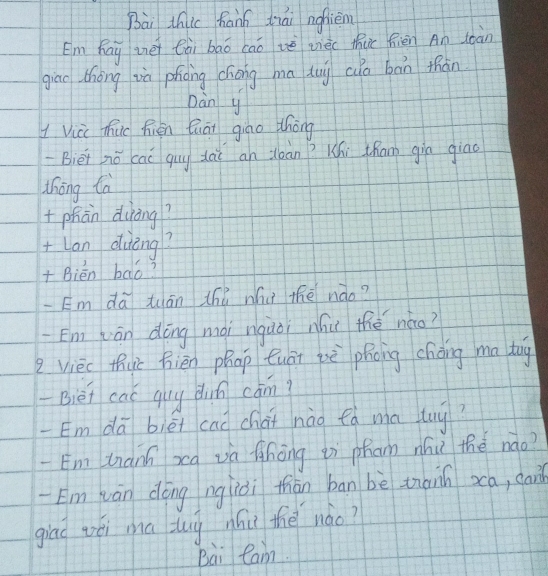 Bài thực hành trải nghiệm
Em hãy viết bài báo cáo về việc thực hiện An toàn
giao thông và phòng chống ma túy của bản thân.
Dàn ý
1 Việc thực hiện luật giao thông
- Biết rõ các quy tắc an toàn? Khi tham gia giao
thông là
+ phần đường?
+ Làn đường?
+ Biển báo?
- Em đã tuân thủ như thế nào?
- Em vận động mọi người như thế nào?
2 Việc thực hiện pháp luật về phòng chống ma túy
- Biết các quy định cấm?
- Em đã biết các chất nào là ma túy?
- Em tránh xa và không vi phạm như thế nào?
- Em vận động người thân bạn bè tránh xa, cảnh
giác với ma túy như thế nào?
Bài làm.